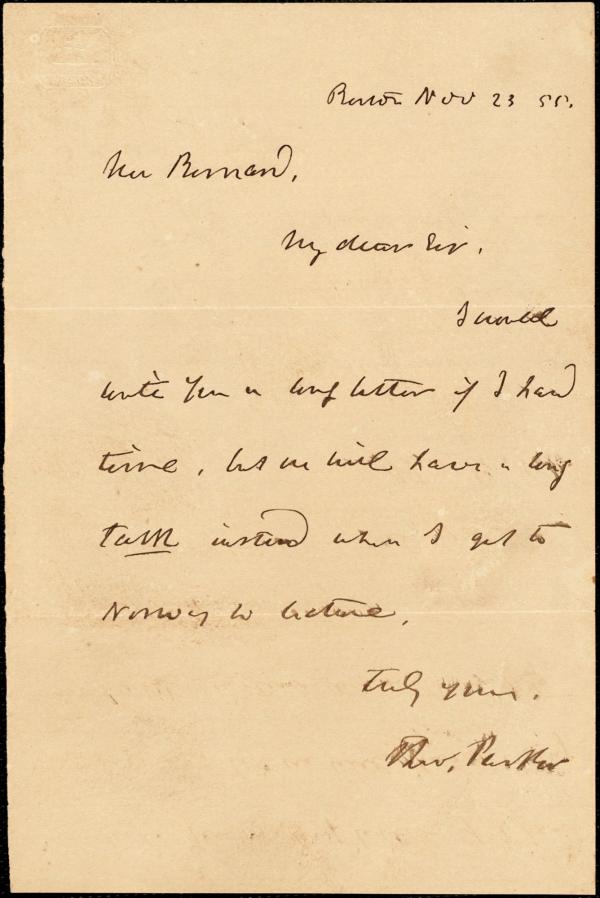 Boston Nov 23 55.
Mr Barnard,
My dear Sir.
I would
write you a long letter if I had
time, but we will have a long
talk instead when I get to
Norway to lecture.
Truly yours.
Theo. Parker